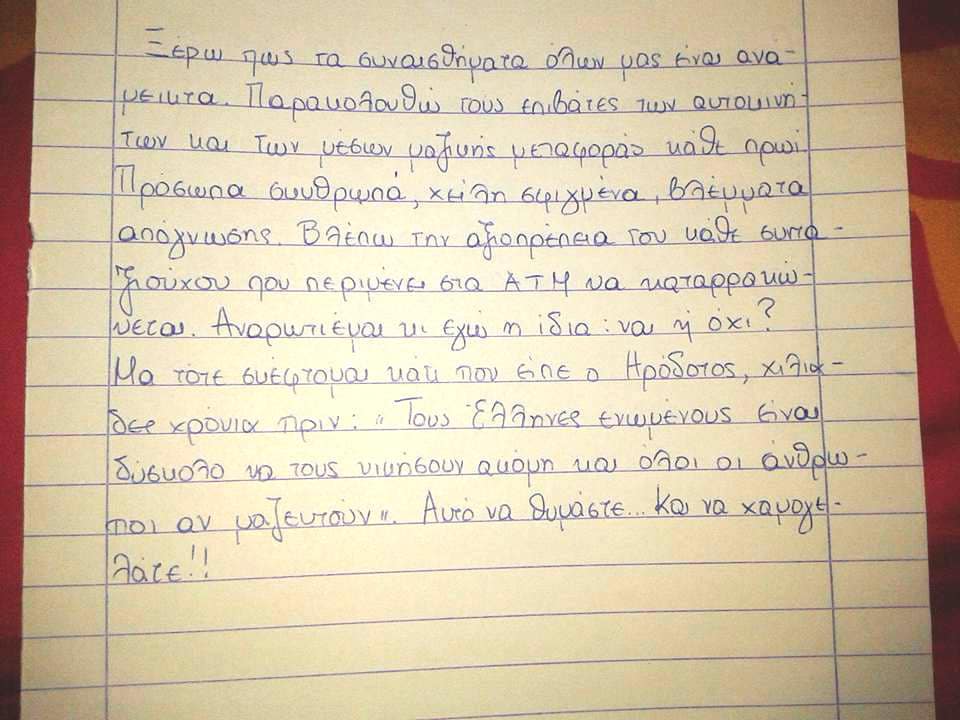 Ξέρω πως τα συναισθήματα όλων μας είναι ανά-
μεικτα. Παρακολουθώ τους επιβάτες των αυτοκινή-
των και των μέσων μαζικής μεταφοράς κάθε πρωί.
Πρόσωπα σκυθρωπά, χείλη σφιγμένα, βλέμματα
απόγνωσης. Βλέπω την αξιοπρέπεια του κάθε συντα-
ξιούχου που περιμένει στα ΑΤΜ να καταρρακώ-
νεται. Αναρωτιέμαι κι εγώ η ίδια: ναι ή όχι?
Μα τότε σκέφτομαι κάτι που είπε ο Ηρόδοτος, χιλιά-
δες χρόνια πριν: «Τους Έλληνες ενωμένους είναι
δύσκολο να τους νικήσουν ακόμη και όλοι οι άνθρω-
ποι αν μαζευτούν». Αυτό να θυμάστε... Και να χαμογε-
λάτε!!